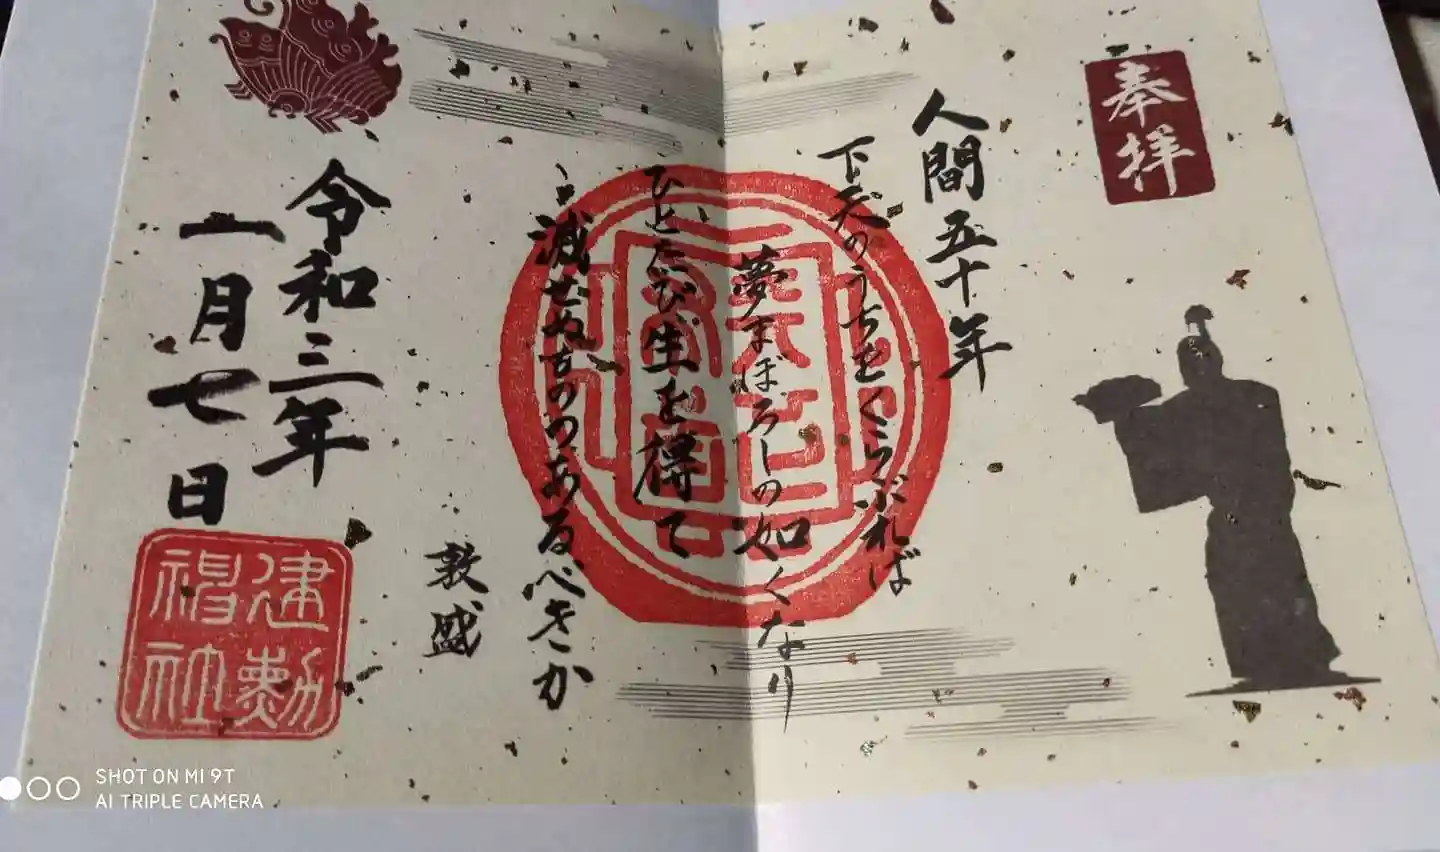 奉拝
人間五十年
下天のうちをくらぶれば
夢まぼろしの如くなり
ひとたび生を得て
滅せぬものゝあるべきか
敦盛
天下布武
令和三年
一月七日
建勲神社
SHOT ON MI 9T
AI TRIPLE CAMERA